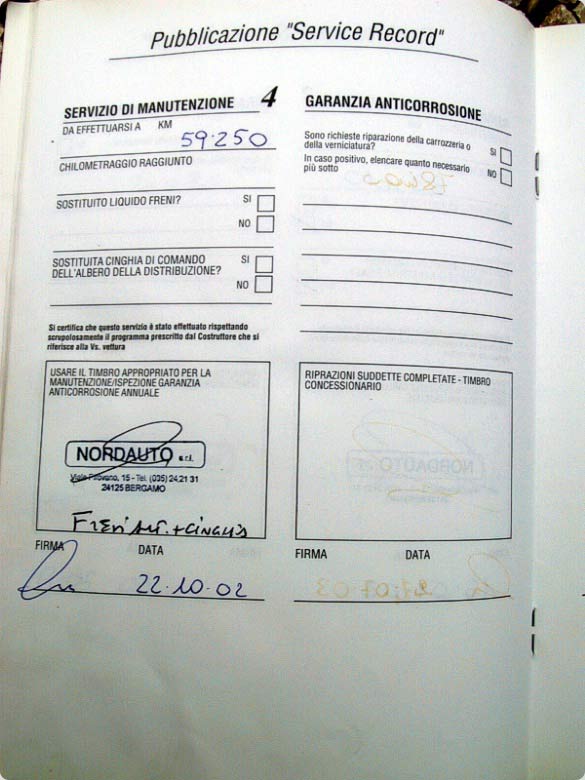 Pubblicazione "Service Record"
SERVIZIO DI MANUTENZIONE 4
DA EFFETTUARSI A KM
59.250
CHILOMETRAGGIO RAGGIUNTO
SOSTITUITO LIQUIDO FRENI? SI
NO
SOSTITUITA CINGHIA DI COMANDO
DELL'ALBERO DELLA DISTRIBUZIONE? SI
NO
Si certifica che questo servizio è stato effettuato rispettando
scrupolosamente il programma prescritto dal Costruttore che si
riferisce alla Vs. vettura
USARE IL TIMBRO APPROPRIATO PER LA
MANUTENZIONE/ISPEZIONE GARANZIA
ANTICORROSIONE ANNUALE
NORDAUTO s.r.l.
Viale Pirovano, 15 - Tel. (035) 24.21 31
24125 BERGAMO
FRENI ANT. + CINGHIS
FIRMA DATA
22.10.02
GARANZIA ANTICORROSIONE
Sono richieste riparazione della carrozzeria o
della verniciatura? SI
In caso positivo, elencare quanto necessario
più sotto NO
RIPRAZIONI SUDDETTE COMPLETATE - TIMBRO
CONCESSIONARIO
FIRMA DATA